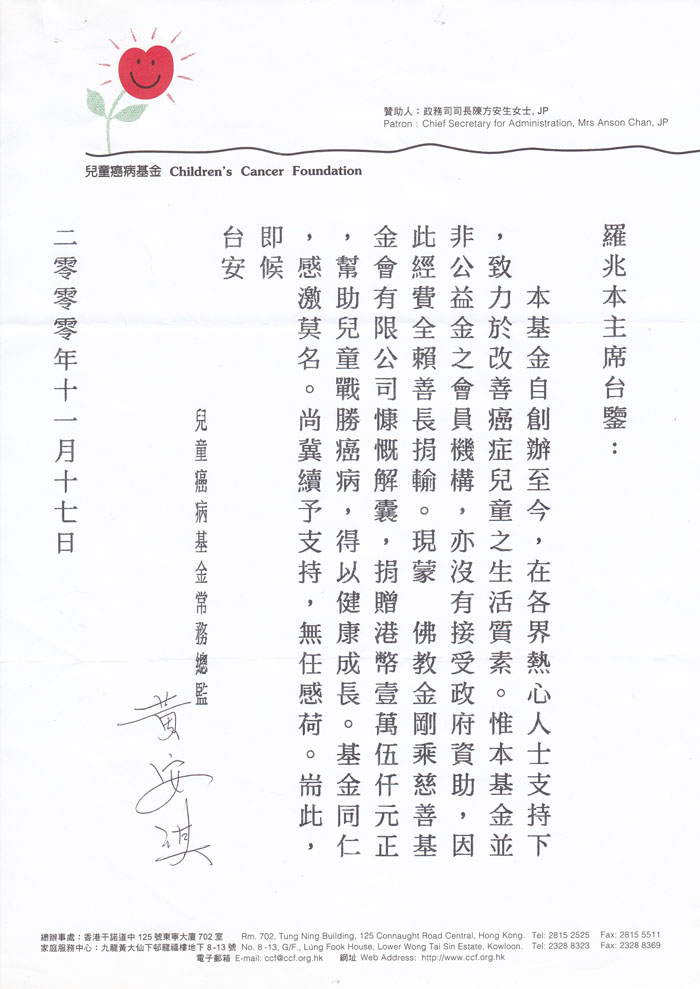 贊助人：政務司司長陳方安生女士, JP
Patron : Chief Secretary for Administration, Mrs Anson Chan, JP
兒童癌病基金 Children's Cancer Foundation
羅兆本主席台鑒：
本基金自創辦至今，在各界熱心人士支持下
，致力於改善癌症兒童之生活質素。惟本基金並
非公益金之會員機構，亦沒有接受政府資助，因
此經費全賴善長捐輸。現蒙　佛教金剛乘慈善基
金會有限公司慷慨解囊，捐贈港幣壹萬伍仟元正
，幫助兒童戰勝癌病，得以健康成長。基金同仁
，感激莫名。尚冀續予支持，無任感荷。耑此，
即候
台安
兒童癌病基金常務總監
黃安琪
二零零零年十一月十七日
總辦事處：香港干諾道中 125 號東寧大廈 702 室 Rm. 702, Tung Ning Building, 125 Connaught Road Central, Hong Kong. Tel: 2815 2525 Fax: 2815 5511
家庭服務中心：九龍黃大仙下邨龍福樓地下 8-13 號 No. 8 -13, G/F., Lung Fook House, Lower Wong Tai Sin Estate, Kowloon. Tel: 2328 8323 Fax: 2328 8369
電子郵箱 E-mail: ccf@ccf.org.hk 網址 Web Address: http://www.ccf.org.hk